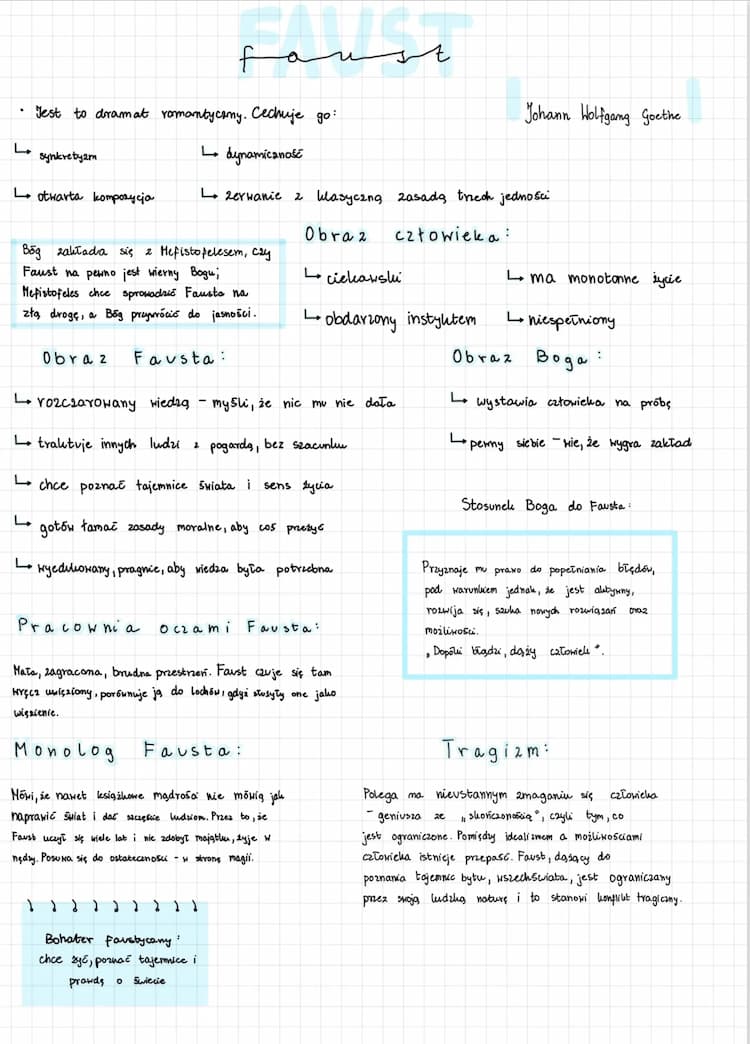 FAUST
faust
• Jest to dramat romantyczny. Cechuje go:
Johann Wolfgang Goethe
↳ synkretyzm
↳ dynamiczność
↳ otwarta kompozycja
↳ zerwanie z klasyczną zasadą trzech jedności
Bóg zakłada się z Mefistofelesem, czy
Faust na pewno jest wierny Bogu;
Mefistofeles chce sprowadzić Fausta na
złą drogę, a Bóg przywrócić do jasności.
Obraz człowieka:
↳ ciekawski
↳ ma monotonne życie
↳ obdarzony instynktem
↳ niespełniony
Obraz Fausta:
↳ rozczarowany wiedzą – myśli, że nic mu nie dała
↳ traktuje innych ludzi z pogardą, bez szacunku
↳ chce poznać tajemnice świata i sens życia
↳ gotów łamać zasady moralne, aby coś przeżyć
↳ wyedukowany, pragnie, aby wiedza była potrzebna
Obraz Boga:
↳ wystawia człowieka na próbę
↳ pewny siebie – wie, że wygra zakład
Stosunek Boga do Fausta:
Przyznaje mu prawo do popełniania błędów,
pod warunkiem jednak, że jest aktywny,
rozwija się, szuka nowych rozwiązań oraz
możliwości.
„Dopóki błądzi, dąży człowiek".
Pracownia oczami Fausta:
Mała, zagracona, brudna przestrzeń. Faust czuje się tam
wręcz uwięziony, porównuje ją do lochów, gdyż służyły one jako
więzienie.
Monolog Fausta:
Mówi, że nawet książkowe mądrości nie mówią jak
naprawić świat i dać szczęście ludziom. Przez to, że
Faust uczył się wiele lat i nic zdobył majątku, żyje w
nędzy. Posuwa się do ostateczności – w stronę magii.
Tragizm:
Polega na nieustannym zmaganiu się człowieka
– geniusza ze „skończonością", czyli tym, co
jest ograniczone. Pomiędzy idealizmem a możliwościami
człowieka istnieje przepaść. Faust, dążący do
poznania tajemnic bytu, wszechświata, jest ograniczany
przez swoją ludzką naturę i to stanowi konflikt tragiczny.
Bohater faustyczny:
chce żyć, poznać tajemnice i
prawdę o świecie